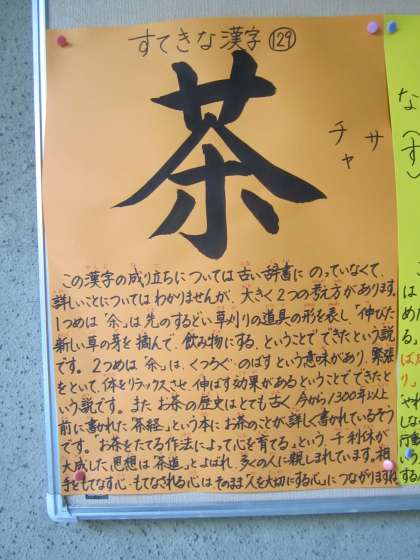 すてきな漢字 129
茶
サ
チャ
この漢字の成り立ちについては古い辞書にのっていなくて、
詳しいことについてはわかりませんが、大きく2つの考え方があります。
1つめは「余」は先のするどい草刈りの道具の形を表し「伸びた
新しい草の芽を摘んで、飲み物にする、ということでできたという説
です。2つめは「余」は、くつろぐ・のばすという意味があり、緊張
をといて、体をリラックスさせ、伸ばす効果があるということでできたと
いう説です。またお茶の歴史はとても古く、今から1300年以上
前に書かれた「茶経」という本にお茶のことが詳しく書かれているそう
です。「お茶をたてる作法によって心を育てる」という、千利休が
大成した思想は「茶道」とよばれ、多くの人に親しまれています。相
手をもてなす心・もてなされる心はそのまま「人を大切にする心」につながりますね
な(す)